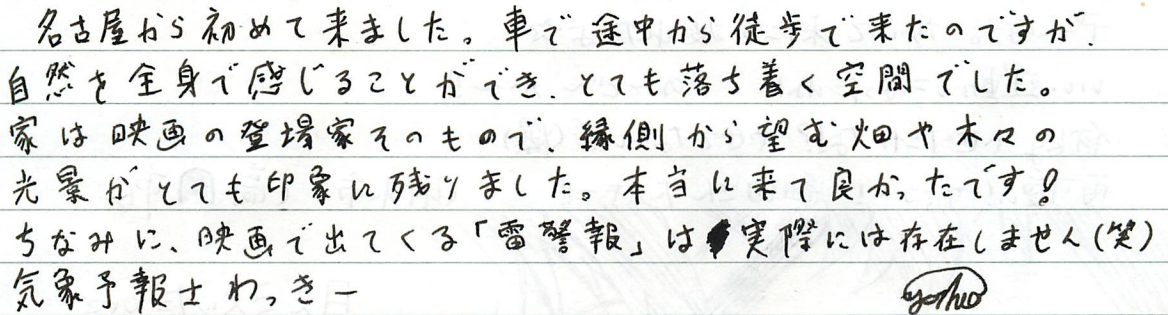 名古屋から初めて来ました。車で途中から徒歩で来たのですが、
自然を全身で感じることができ、とても落ち着く空間でした。
家は映画の登場家そのもので、縁側から望む畑や木々の
光景がとても印象に残りました。本当に来て良かったです！
ちなみに、映画で出てくる「雷警報」は実際には存在しません(笑)
気象予報士わっきー